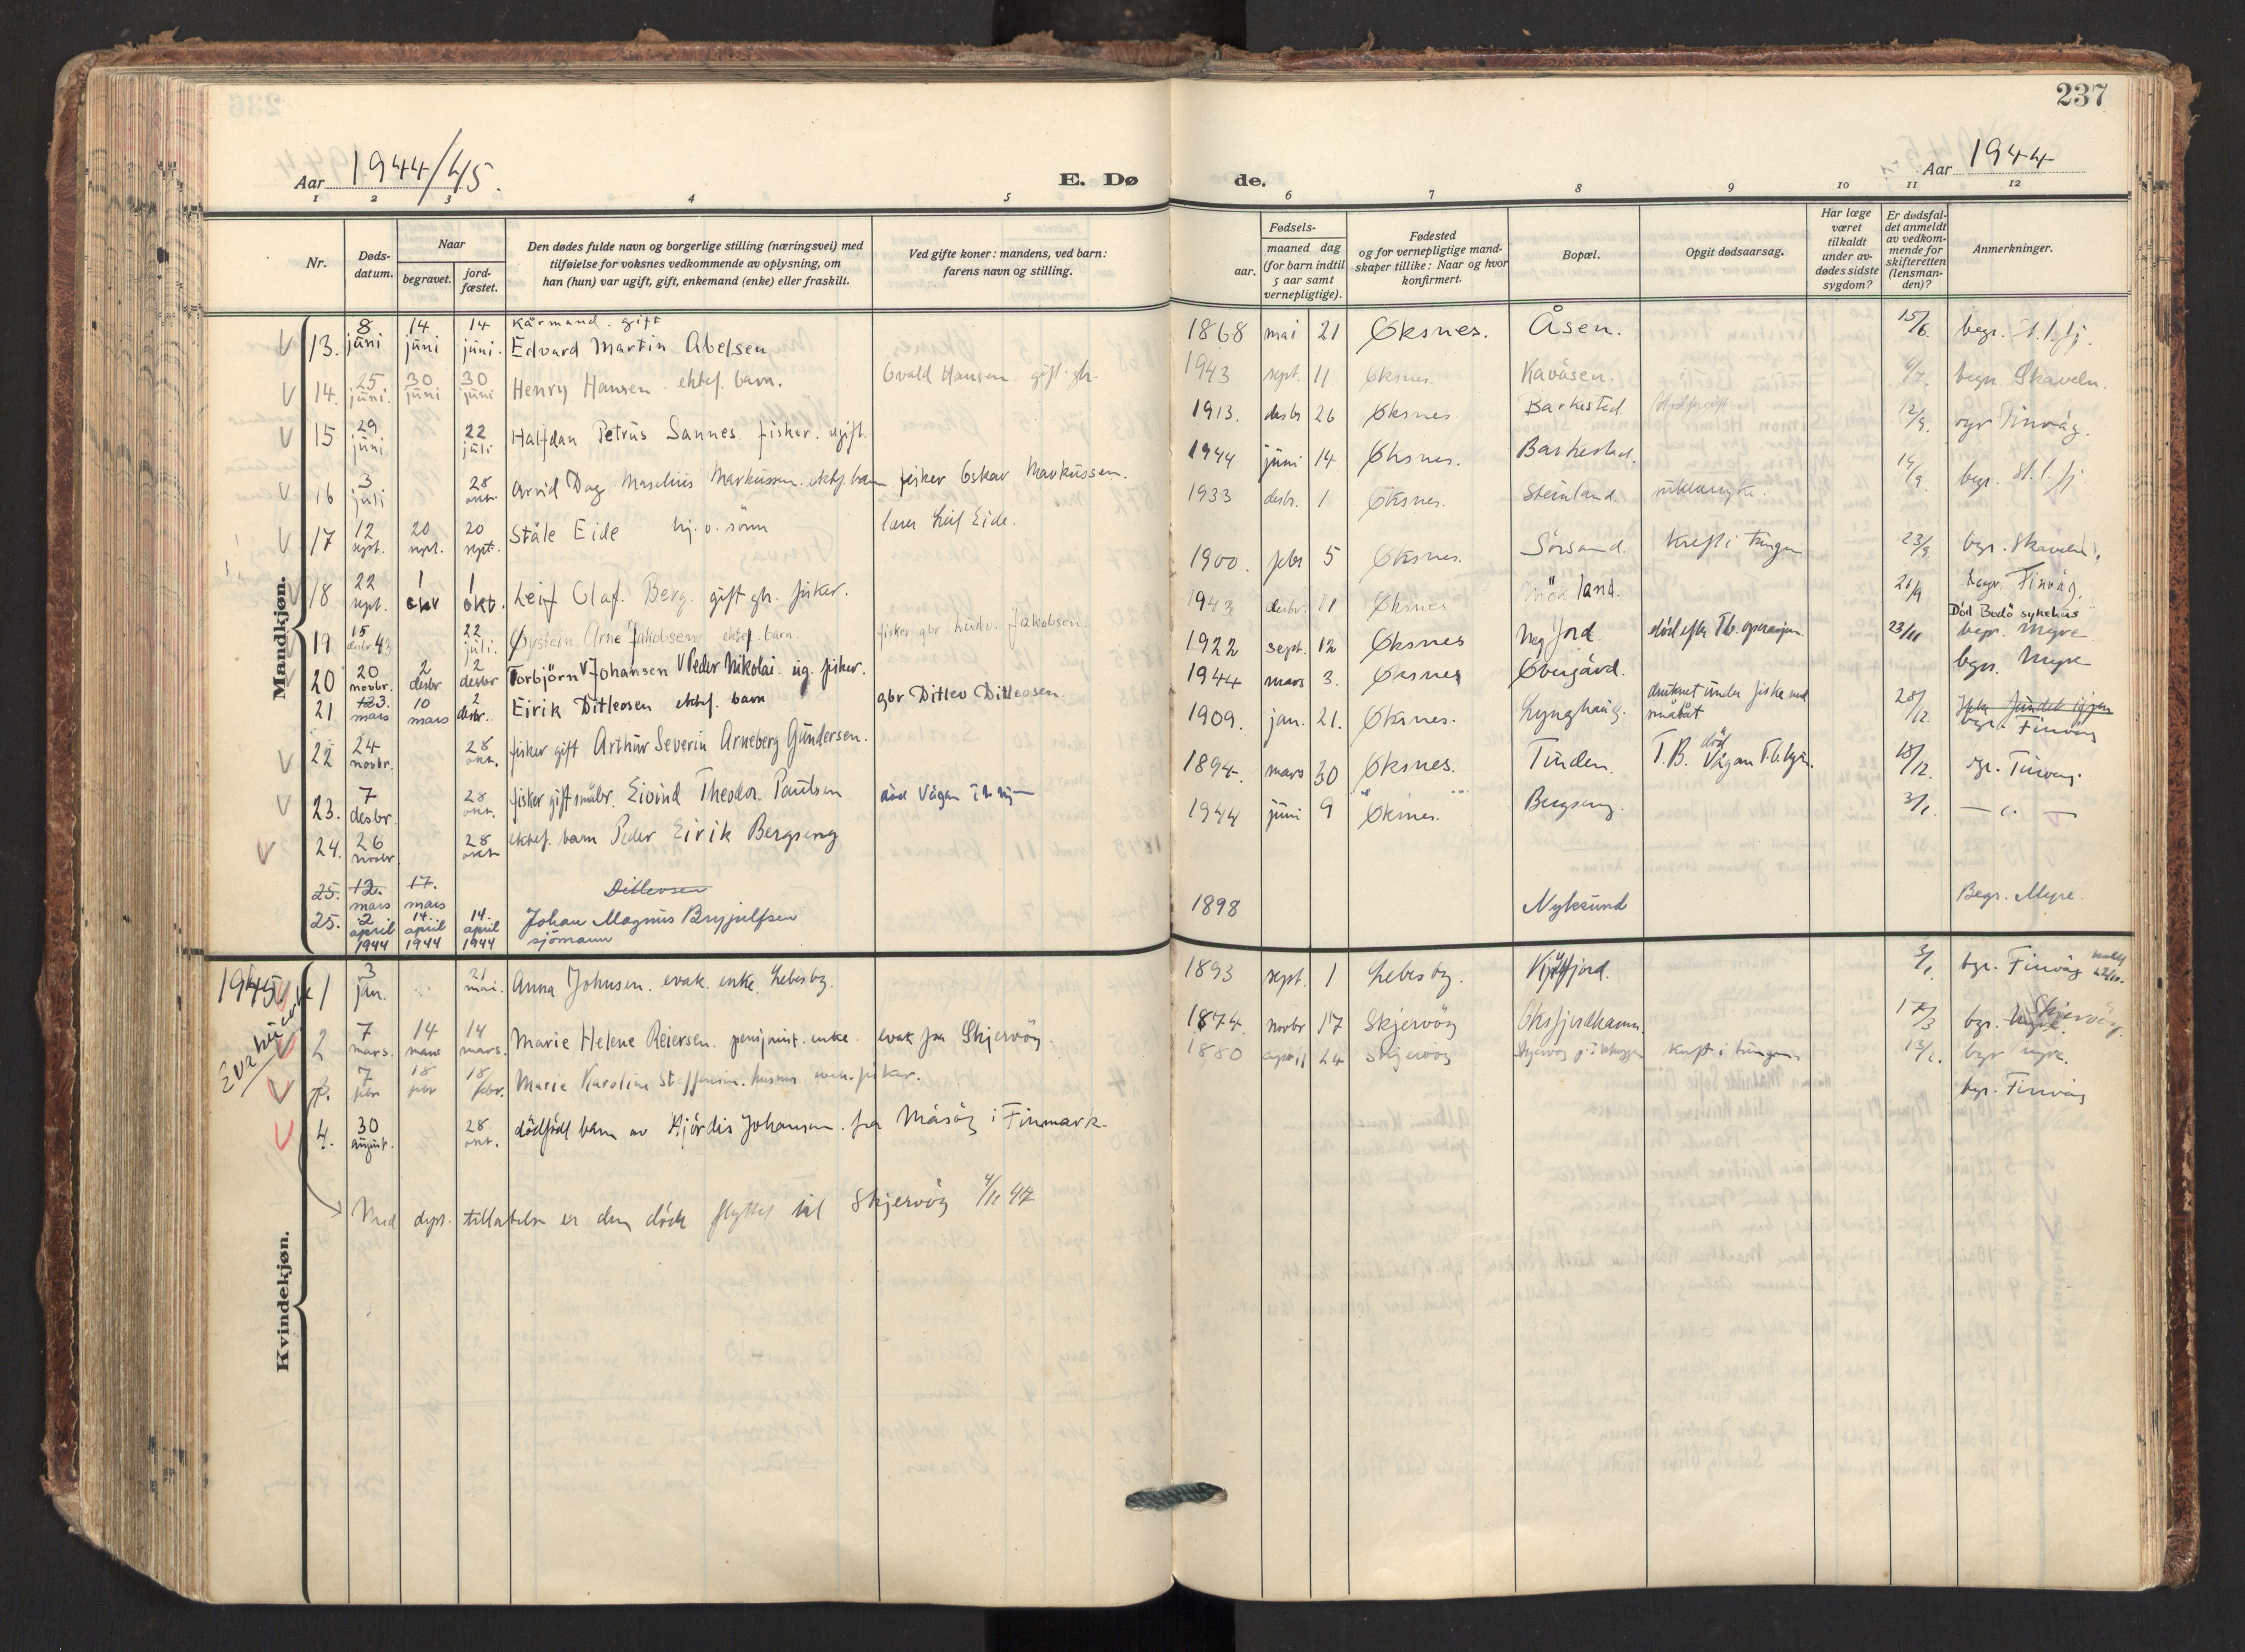 237
Aar 1944/45.
E. Døde.
Aar 1944
1 2 3 4 5 6 7 8 9 10 11 12
Nr.
Døds-
datum.
Naar
begravet.
jord-
fæstet.
Den dødes fulde navn og borgerlige stilling (næringsvei) med
tilføielse for voksnes vedkommende av oplysning, om
han (hun) var ugift, gift, enkemand (enke) eller fraskilt.
Ved gifte koner: mandens, ved barn:
farens navn og stilling.
Fødsels-
aar.
maaned dag
(for barn indtil
5 aar samt
vernepligtige).
Fødested
og for vernepligtige mand-
skaper tillike: Naar og hvor
konfirmert.
Bopæl.
Opgit dødsaarsag.
Har læge
været
tilkaldt
under av-
dødes sidste
sygdom?
Er dødsfal-
det anmeldt
av vedkom-
mende for
skifteretten
(lensman-
den)?
Anmerkninger.
Mandkjøn.
13. 8 juni 14 juni 14 juni. Kårmand. gift
Edvard Martin Abelsen 1868 mai 21 Øksnes. Åsen. 15/6. begr.
14. 25 juni. 30 juni 30 juni Henry Hansen ektef. barn. Hansen gift 1943 sept. 11 Øksnes.
15 29 juni 22 juli Halfdan Petrus Sannes fisker. ugift. 1913. desbr 26 Øksnes Barkested. 12/9.
16 3 juli 28 okt. Arvid Dag Markussen. ektef. barn fisker Oskar Markussen. 1944 juni 14 Øksnes. Barkestad. begr.
17 12 sept. 20 sept. 20 sept. Ståle Eide sönn lærer Leif Eide. 1933 desbr. 1 Øksnes. Steinland
18 22 sept. 1 okt 1 okt. Leif Olaf. Berg. gift fisker. 1900. febr 5 Øksnes. Sörsand. kreft i tungen 23/9 begr. Skaveln.
19 15 desbr 43 22 juli. Øystein Arne Jakobsen ektef. barn. fisker gbr Ludv. Jakobsen 1943 desbr. 11 Øksnes begr. Finvåg.
20 20 novbr. 2 desbr 2 desbr Torbjörn Johansen Peder Nikolai ug. fisker. 1922 sept. 12 Øksnes död efter Tb. operasjon. 23/11 Död Bodö sykehus
begr. Myre
21 mars 10 mars 2 desbr. Eirik Ditlevsen ektef. barn gbr Ditlev Ditlevsen. 1944 mars 3. Øksnes Övergård. begr. Myre
22 24 novbr. 28 okt. fisker gift Arthur Severin Arneberg Gundersen. 1909. jan. 21. Øksnes. Lynghaug. druknet under fiske med
småbåt 28/12. Ikke fundet igjen
begr. Finvåg
23. 7 desbr. 28 okt. fisker gift småbr. Eivind Theodor Paulsen död Vågan 1894. mars 30 Øksnes. Tinden. T.B. död Vågan 18/12.
24. 26 novbr. 28 okt. ektef. barn Peder Eirik Bergseng 1944 juni 9 Øksnes. Bergseng. 3/1.
25. 12. mars 17. mars Ditlevsen
25. 2 april 1944 14. april 1944 14. april 1944 Johan Magnus Brynjulfsen
sjömann 1898 Nyksund Begr. Myre.
Kvindekjøn.
1945
1 3 jan. 21 mai. Anna Johnsen. evak. enke. Lebesby. 1893 sept. 1 Lebesby. 3/1. bgr. Finvåg
2 7 mars. 14 mars 14 mars. Marie Helene Reiersen. pensjonist. enke. evak fra Skjervöy. 1874. novbr 17 Skjervöy 17/3 bgr. Skjervöy.
3. 7 febr 18 febr 18 febr. Marie Karoline 1880 april 24 Skjervöy kreft i tungen. bgr
bgr. Finvåg
4. 30 august. 28 okt. dödfödt barn av Hjördis Johansen. fra Måsöy i Finmark.
Med tillatelse er den döde flyttet til Skjervöy 4/11 47